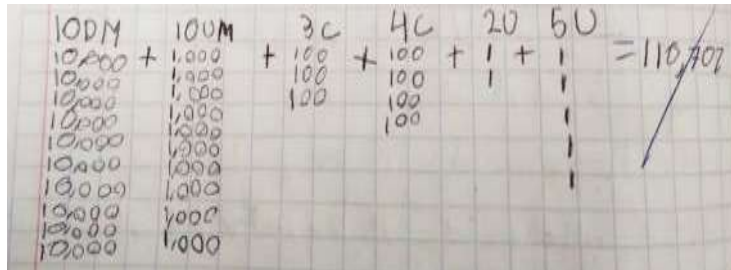 10DM 10UM 3C 4C 2U 5U
10,000 + 1,000 + 100 + 100 + 1 + 1 = 110,707
10,000 1,000 100 100 1 1
10,000 1,000 100 100 1
10,000 1,000 100 1
10,000 1,000 1
10,000 1,000
10,000 1,000
10,000 1,000
10,000 1,000
10,000 1,000